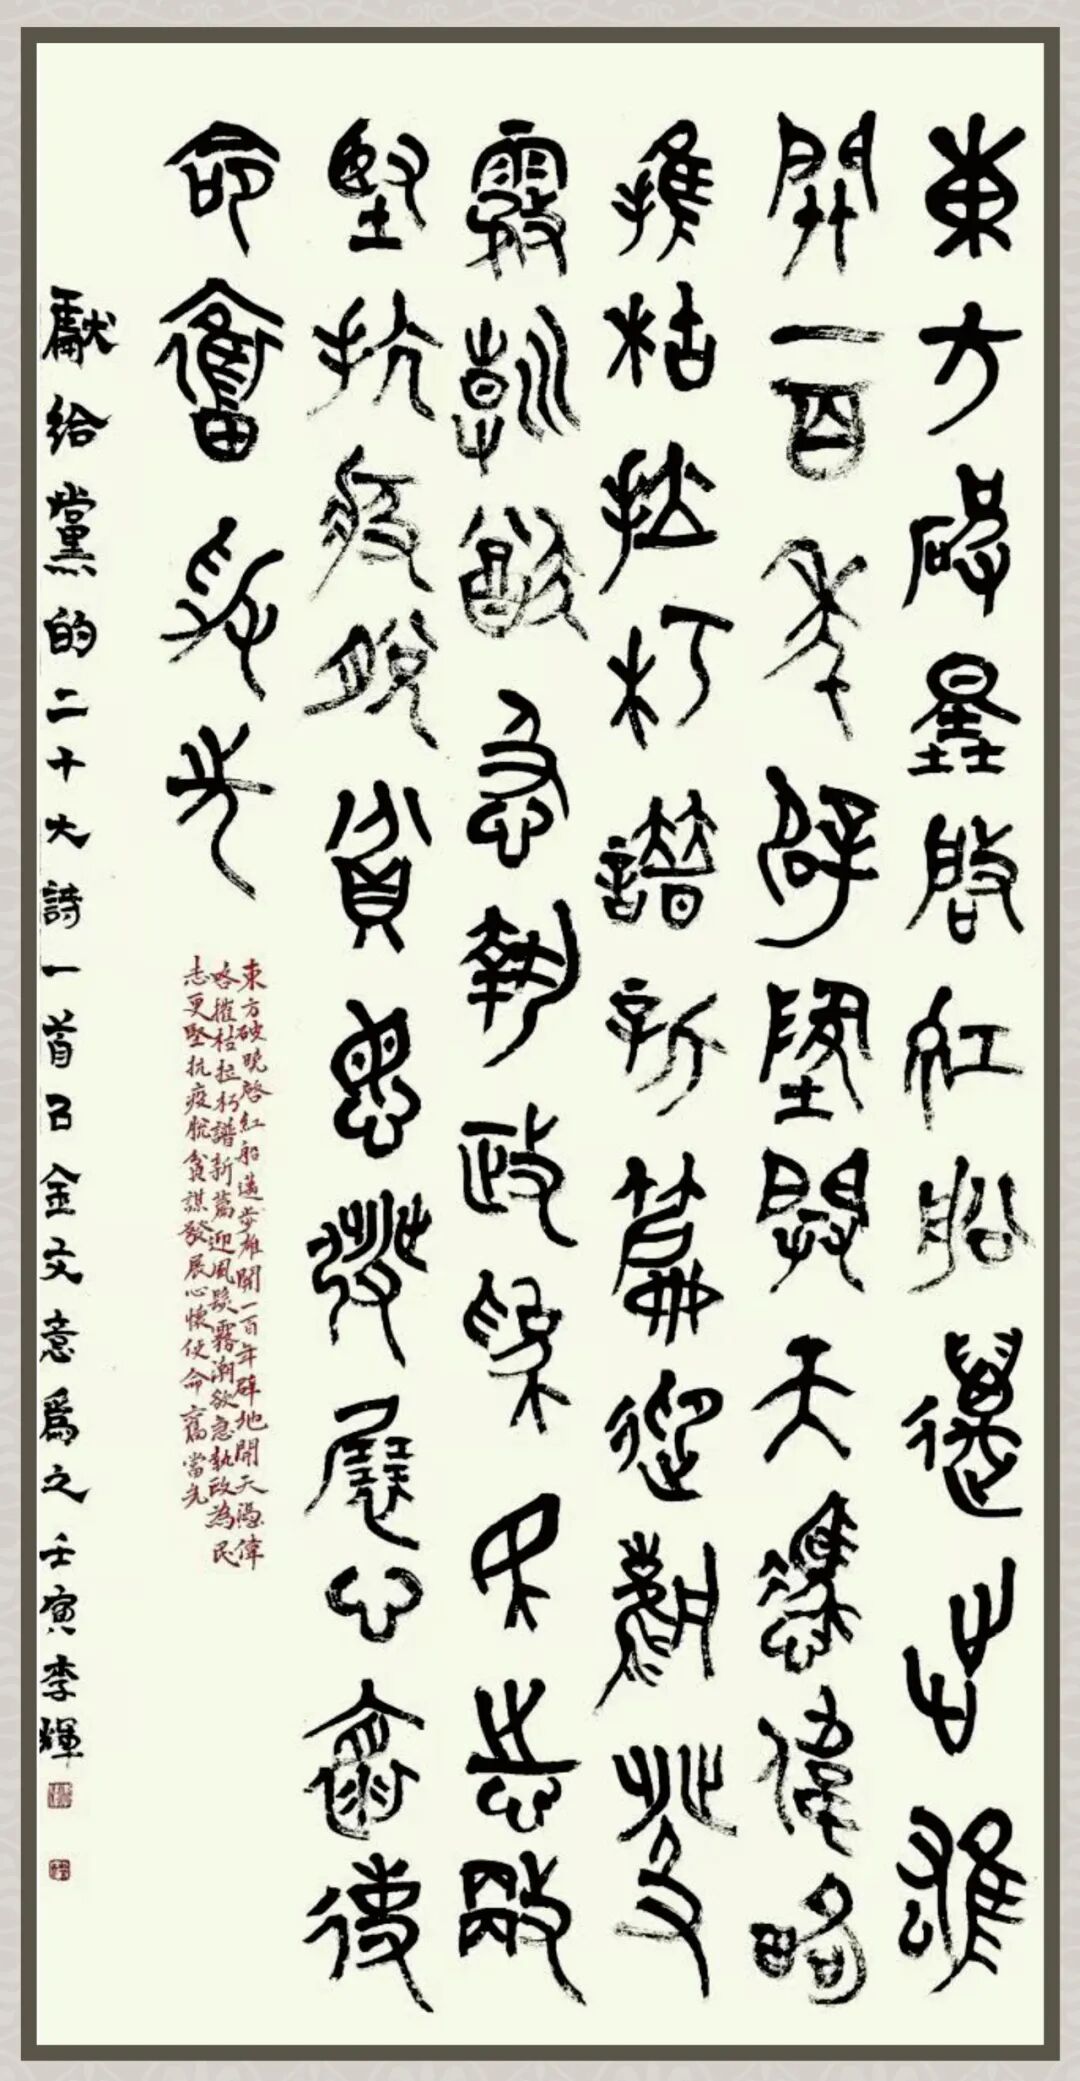 東方破曉啓紅船邁步雄
開一百年辟地開天憑偉略
摧枯拉朽譜新篇迎風
霧潮欲急執政為民志更
堅抗疫脫貧謀發展心懷使
命奮當先
東方破曉啓紅船邁步雄開一百年辟地開天憑偉
略摧枯拉朽譜新篇迎風霧潮欲急執政為民
志更堅抗疫脫貧謀發展心懷使命奮當先
獻給黨的二十大詩一首㠯金文意爲之壬寅李輝